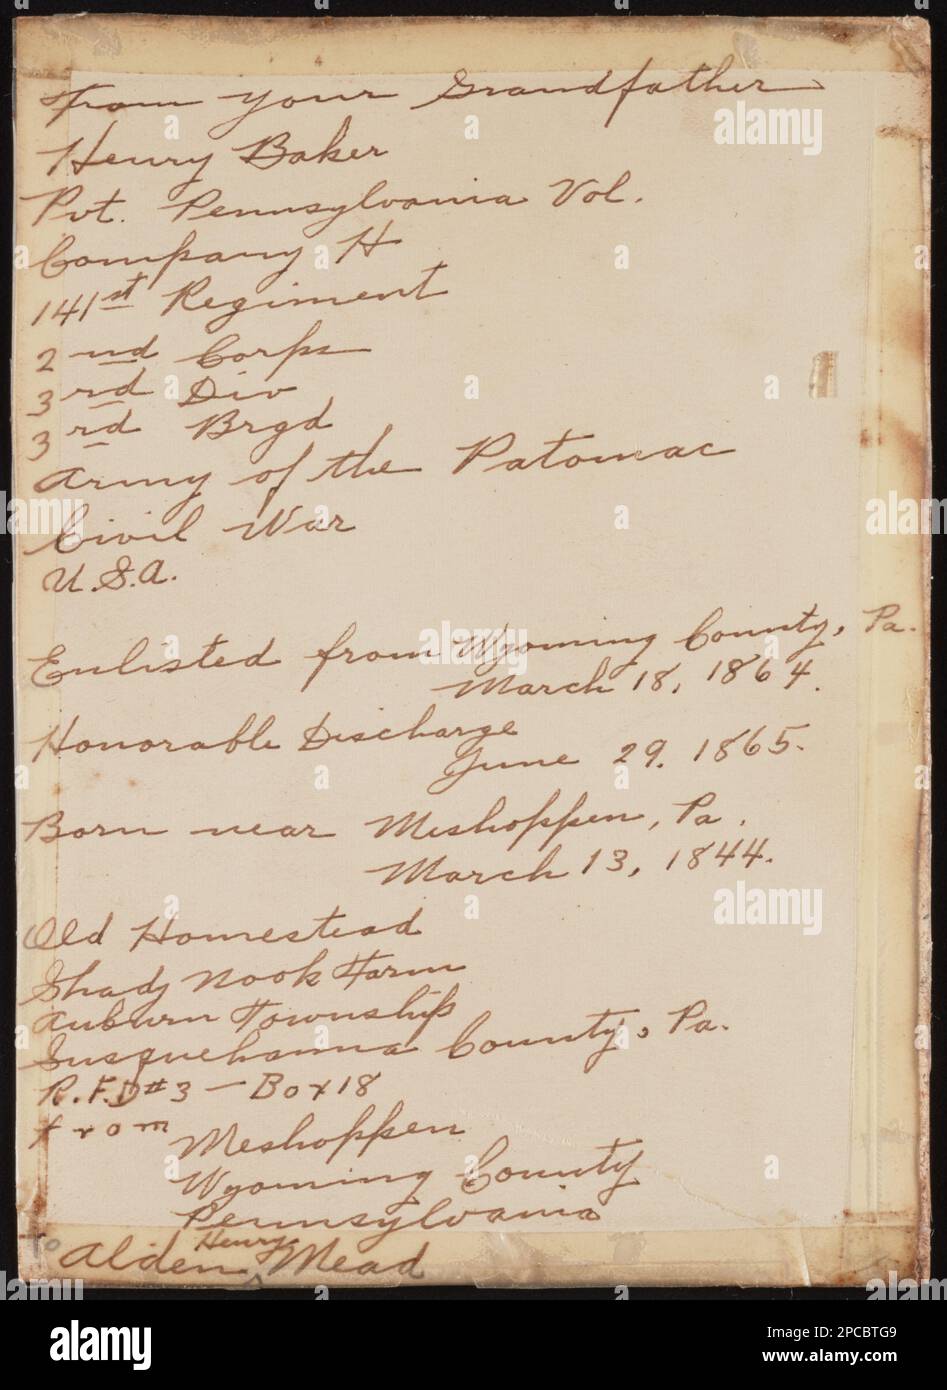 From your Grandfather
Henry Baker
Pvt. Pennsylvania Vol.
Company H
141st Regiment
2nd Corps
3rd Div
3rd Brgd
Army of the Patomac
Civil War
U.S.A.
Enlisted from Wyoming County, Pa.
March 18, 1864.
Honorable Discharge
June 29, 1865.
Born near Meshoppen, Pa.
March 13, 1844.
Old Homestead
Shady Nook Farm
Auburn Township
Susquehanna County, Pa.
R.F.D #3 — Box 18
from
Meshoppen
Wyoming County
Pennsylvania
to Alden Henry Mead
alamy
alamy
alamy
alamy
alamy
Image ID: 2PCBTG9
www.alamy.com